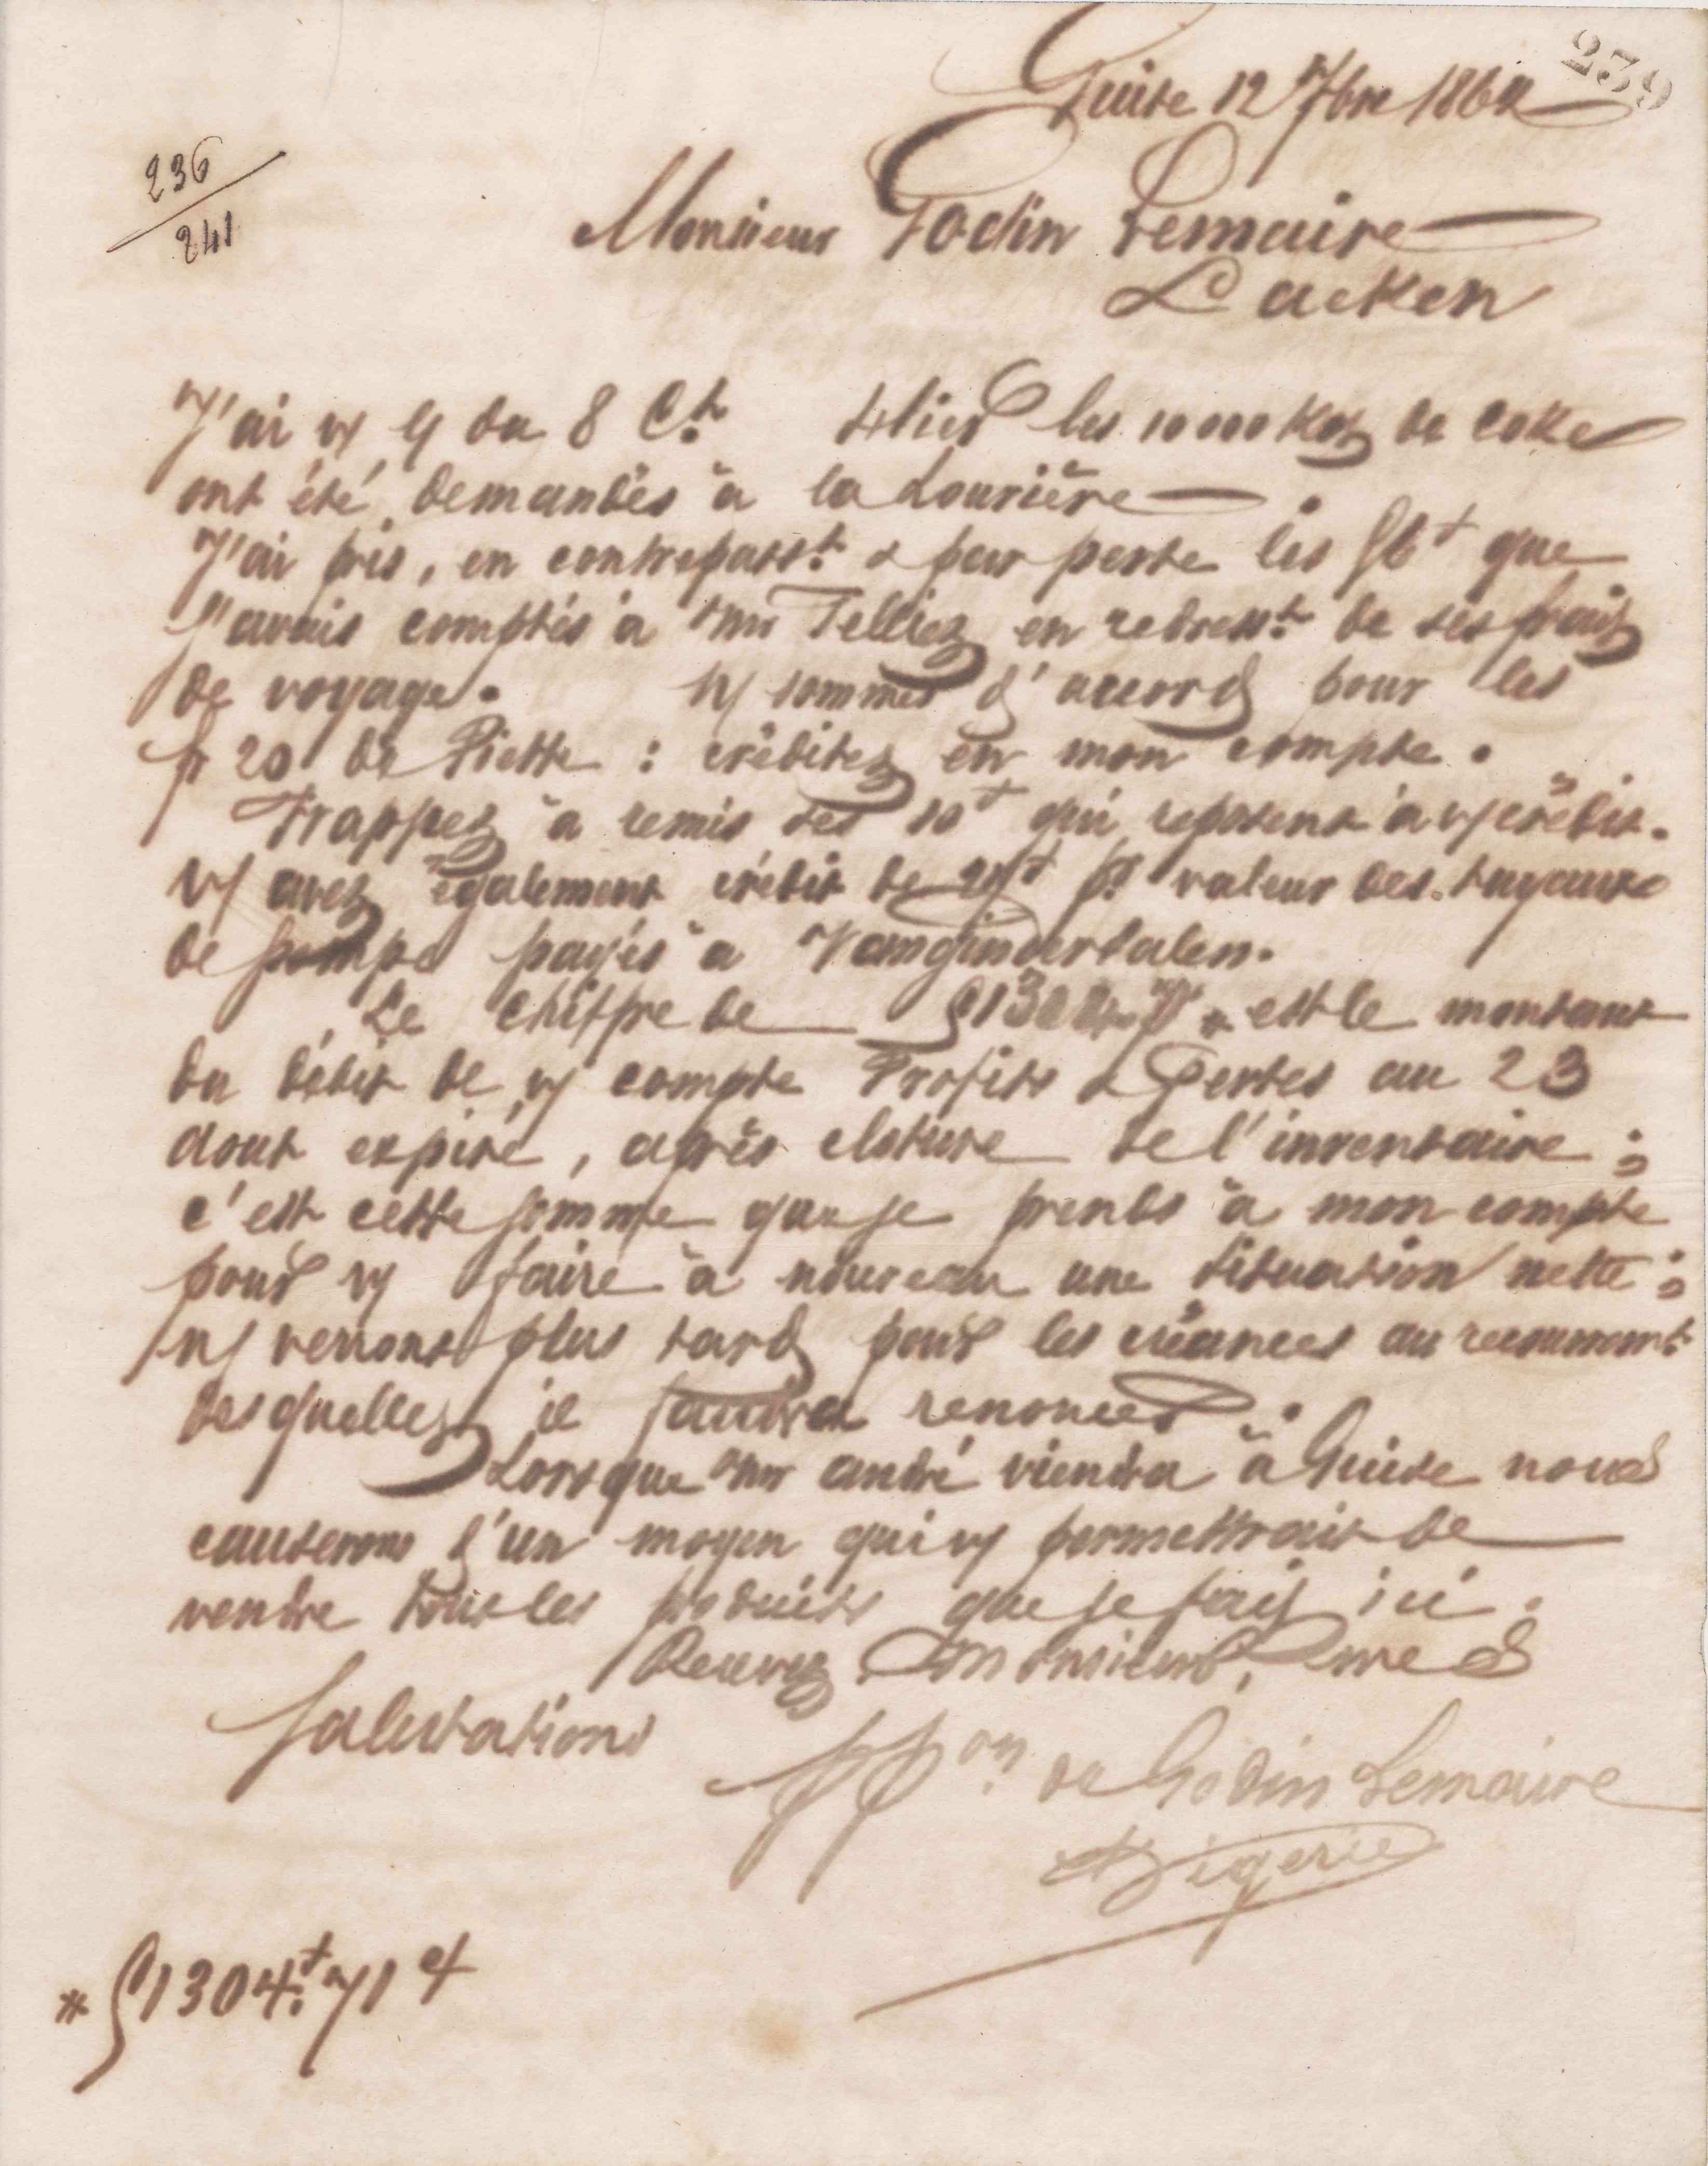 239
Guise 12 7bre 1864
236
241
Monsieur Godin Lemaire
Laeken
J'ai v/ L/ du 8 Ct. Hier les 10000 Kos de coke
ont été demandés à la Louvière
J'ai pris, en contrepasst. & par perte les que
j'avais comptés à Mr Tellier en redresst. de ses frais
de voyage. N/ sommes d'accord pour les
fr 20 de Piette : créditez en mon compte.
Frappez a remis ses 10f qui reposent à v/ crédit.
V/ avez également crédit de pr. valeur des tuyaux
de pompe payés à Vanginderdalen.
Le chiffre de * est le montant
du débit de v/ compte Profits & Pertes au 23
aout expiré, après cloture de l'inventaire ;
c'est cette somme que je prends à mon compte
pour v/ faire à nouveau une situation nette ;
n/ verrons plus tard pour les créances au recouvremt.
desquelles il faudra renoncer.
Lorsque Mr andré viendra à Guise nous
causerons d'un moyen qui v/ permettrait de
vendre tous les produits que je fais ici.
Recevez Monsieur, mes
salutations
ppon. de Godin Lemaire
* 51304f.71c